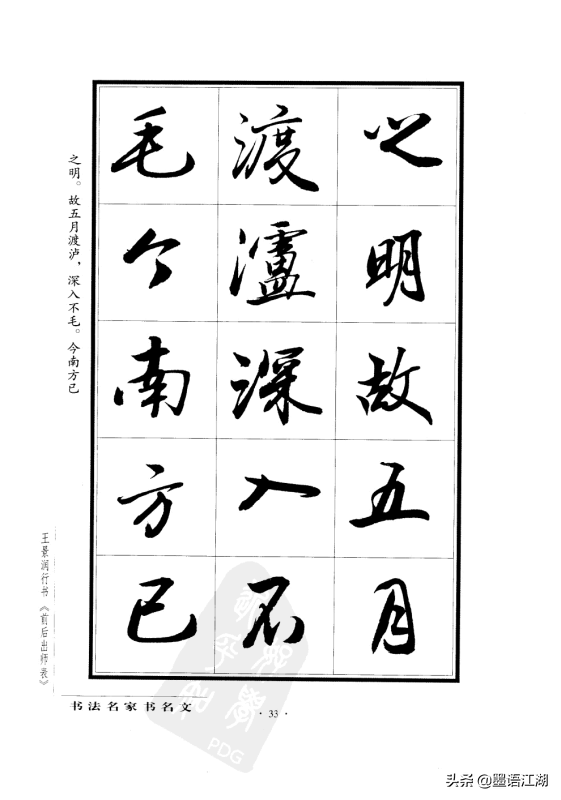 之明故五月
渡瀘深入不
毛今南方已
之明。故五月渡泸，深入不毛。今南方已
王景润行书《前后出师表》
书法名家书名文
· 33 ·
PDG
头条@墨语江湖